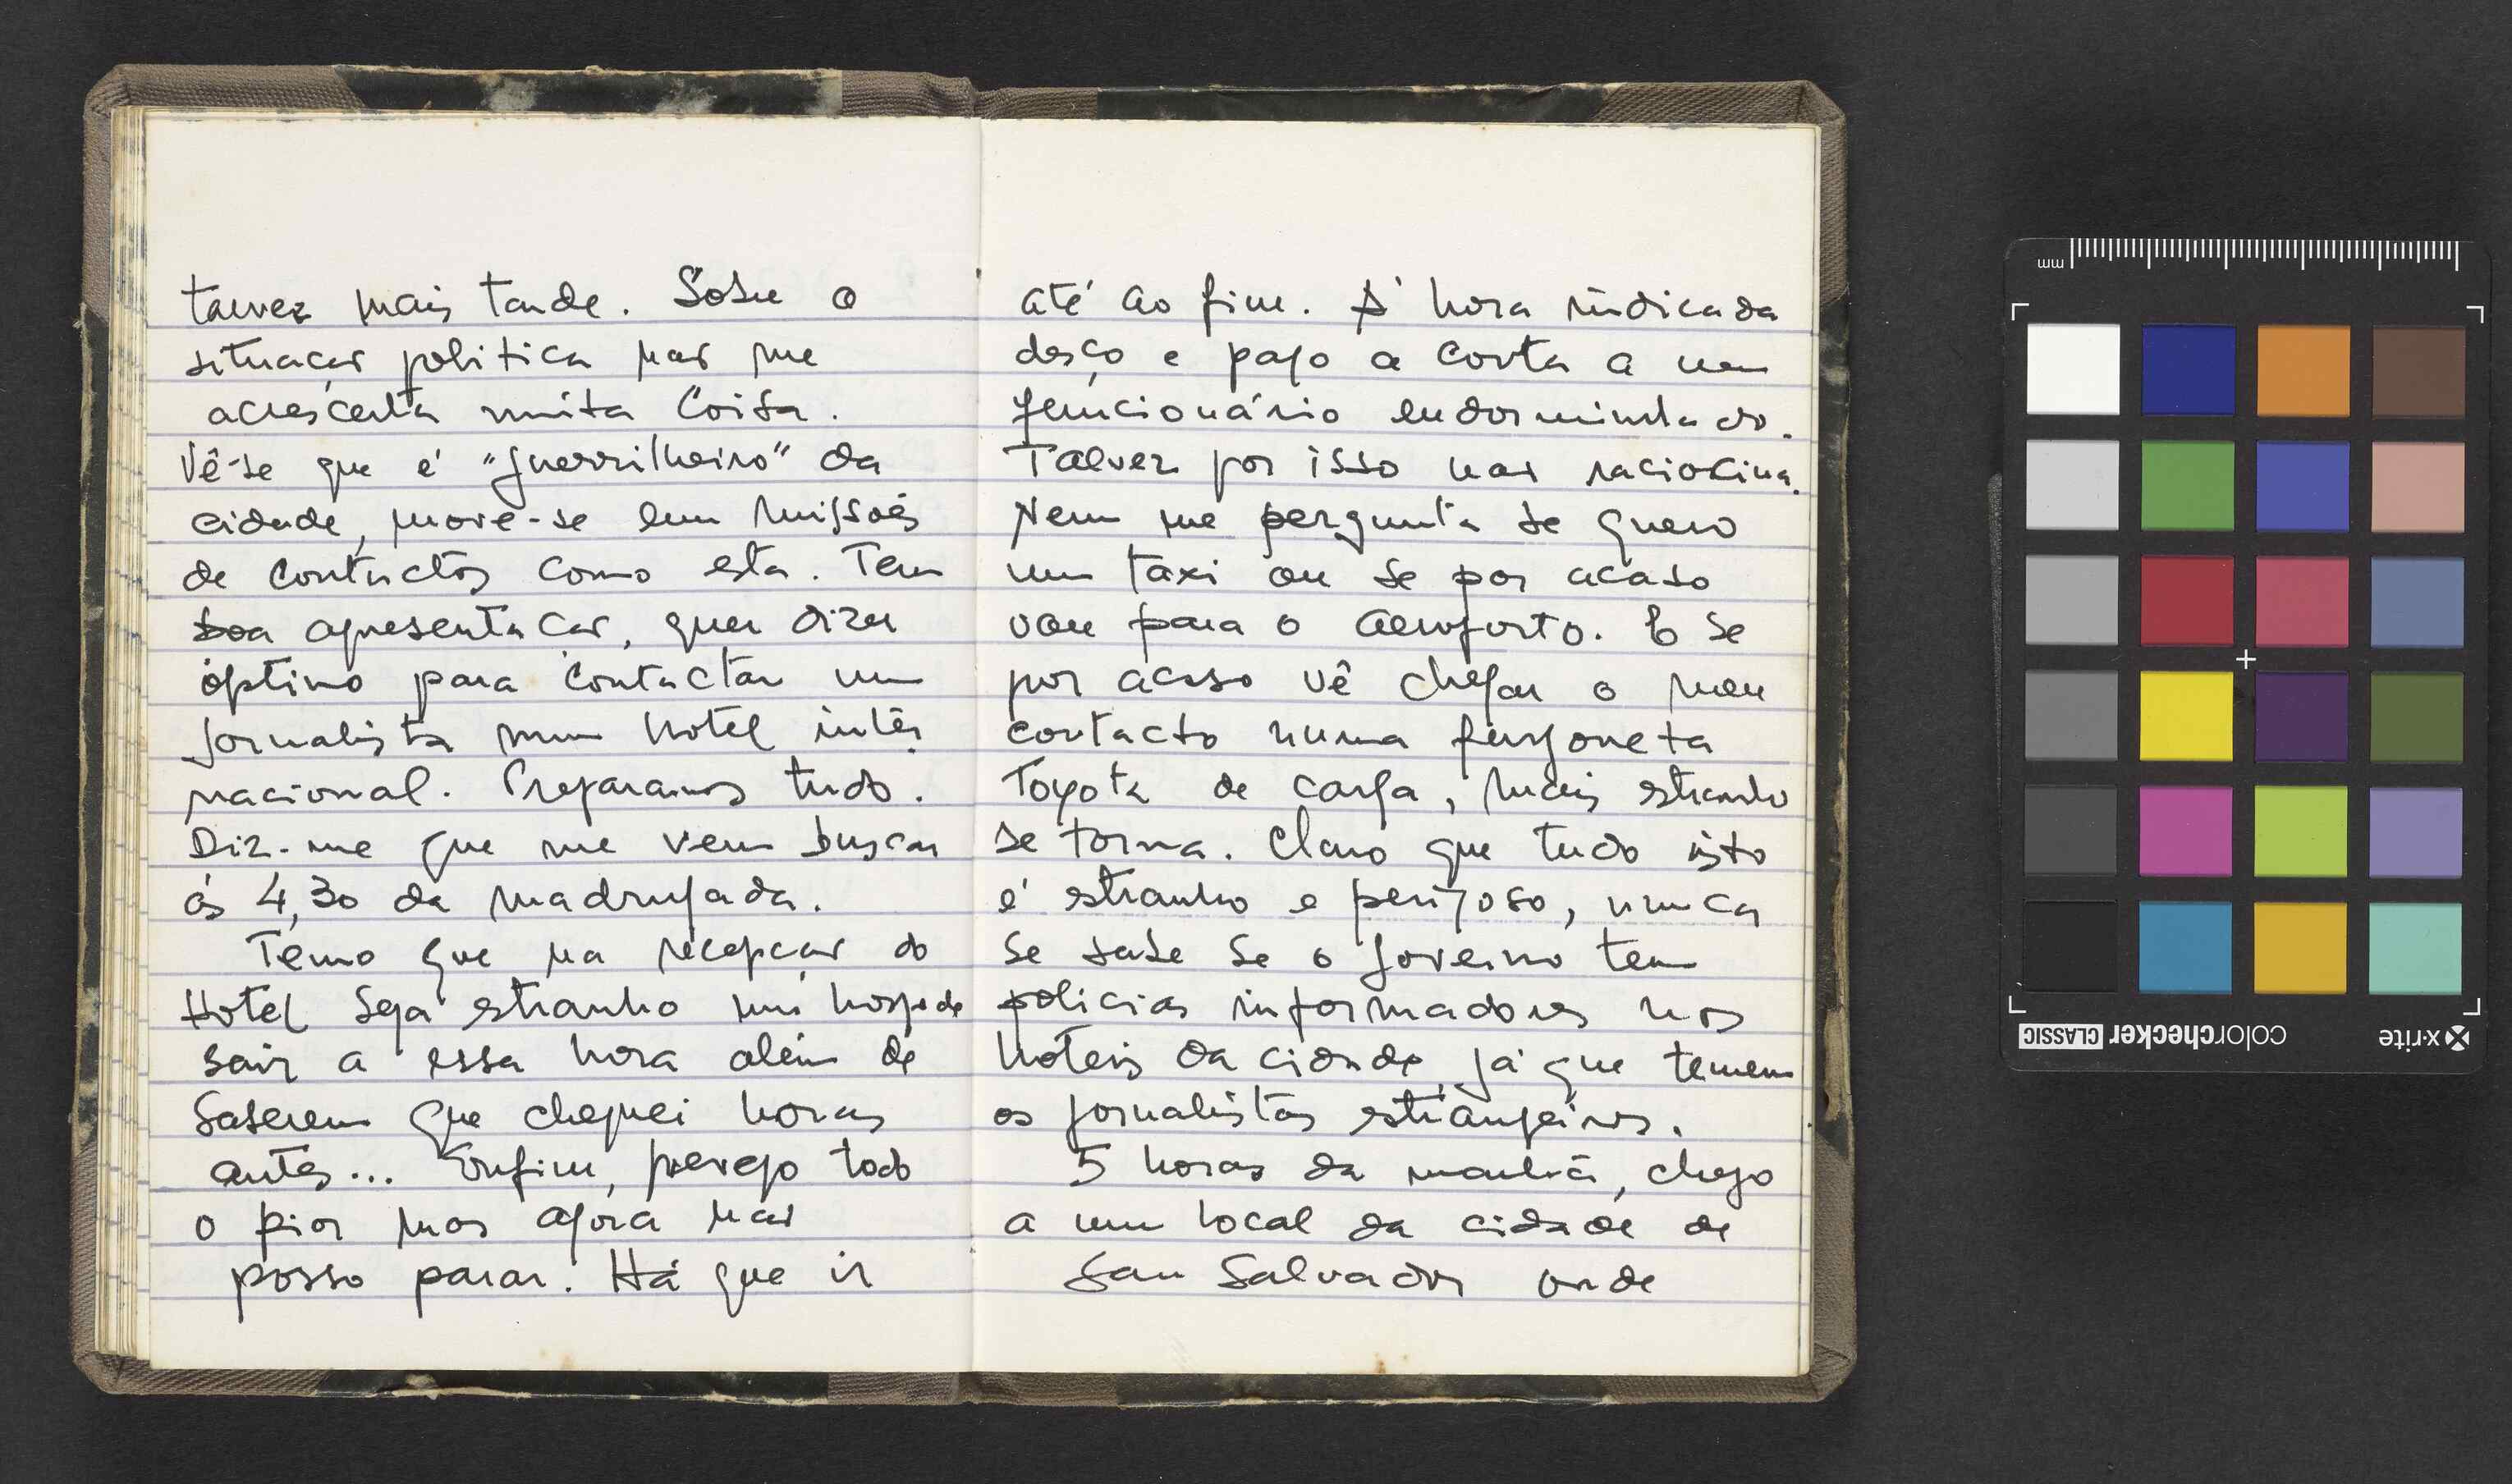 talvez mais tarde. Sobre a
situação politica não me
acrescenta muita coisa.
Vê-se que é "guerrilheiro" da
cidade, move-se em missões
de contactos como esta. Tem
boa apresentação, quer dizer
óptimo para contactar um
jornalista num hotel inter
nacional. Preparamos tudo.
Diz-me que me vem buscar
ás 4,30 da madrugada.
Temo que na recepção do
Hotel seja estranho um hospede
sair a essa hora além de
saberem que cheguei horas
antes... Enfim, prevejo todo
o pior mas agora não
posso parar. Há que ir
até ao fim. Á hora indicada
desço e pago a conta a um
funcionário endorminhado.
Talvez por isso não raciocina.
Nem me pergunta se quero
um taxi ou se por acaso
vou para o aeroporto. E se
por acaso vê chegar o meu
contacto numa furgoneta
Toyota de carga, mais estranho
se torna. Claro que tudo isto
é estranho e perigoso, nunca
se sabe se o governo tem
policias informadores nos
hoteis da cidade, já que temem
os jornalistas estrangeiros.
5 horas da manhã, chego
a um local da cidade de
San Salvador onde
mm
x·rite
colorchecker CLASSIC